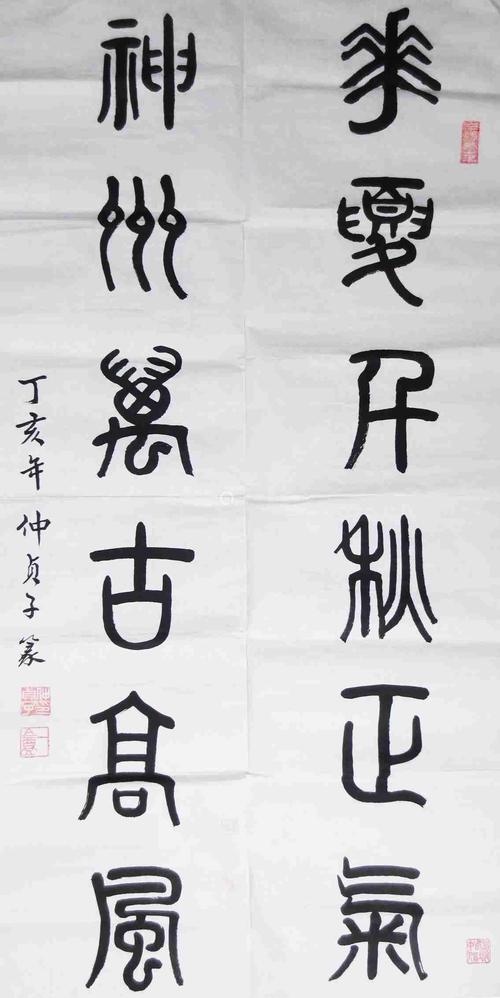 華夏千秋正氣
神州萬古高風
丁亥年仲貞子篆